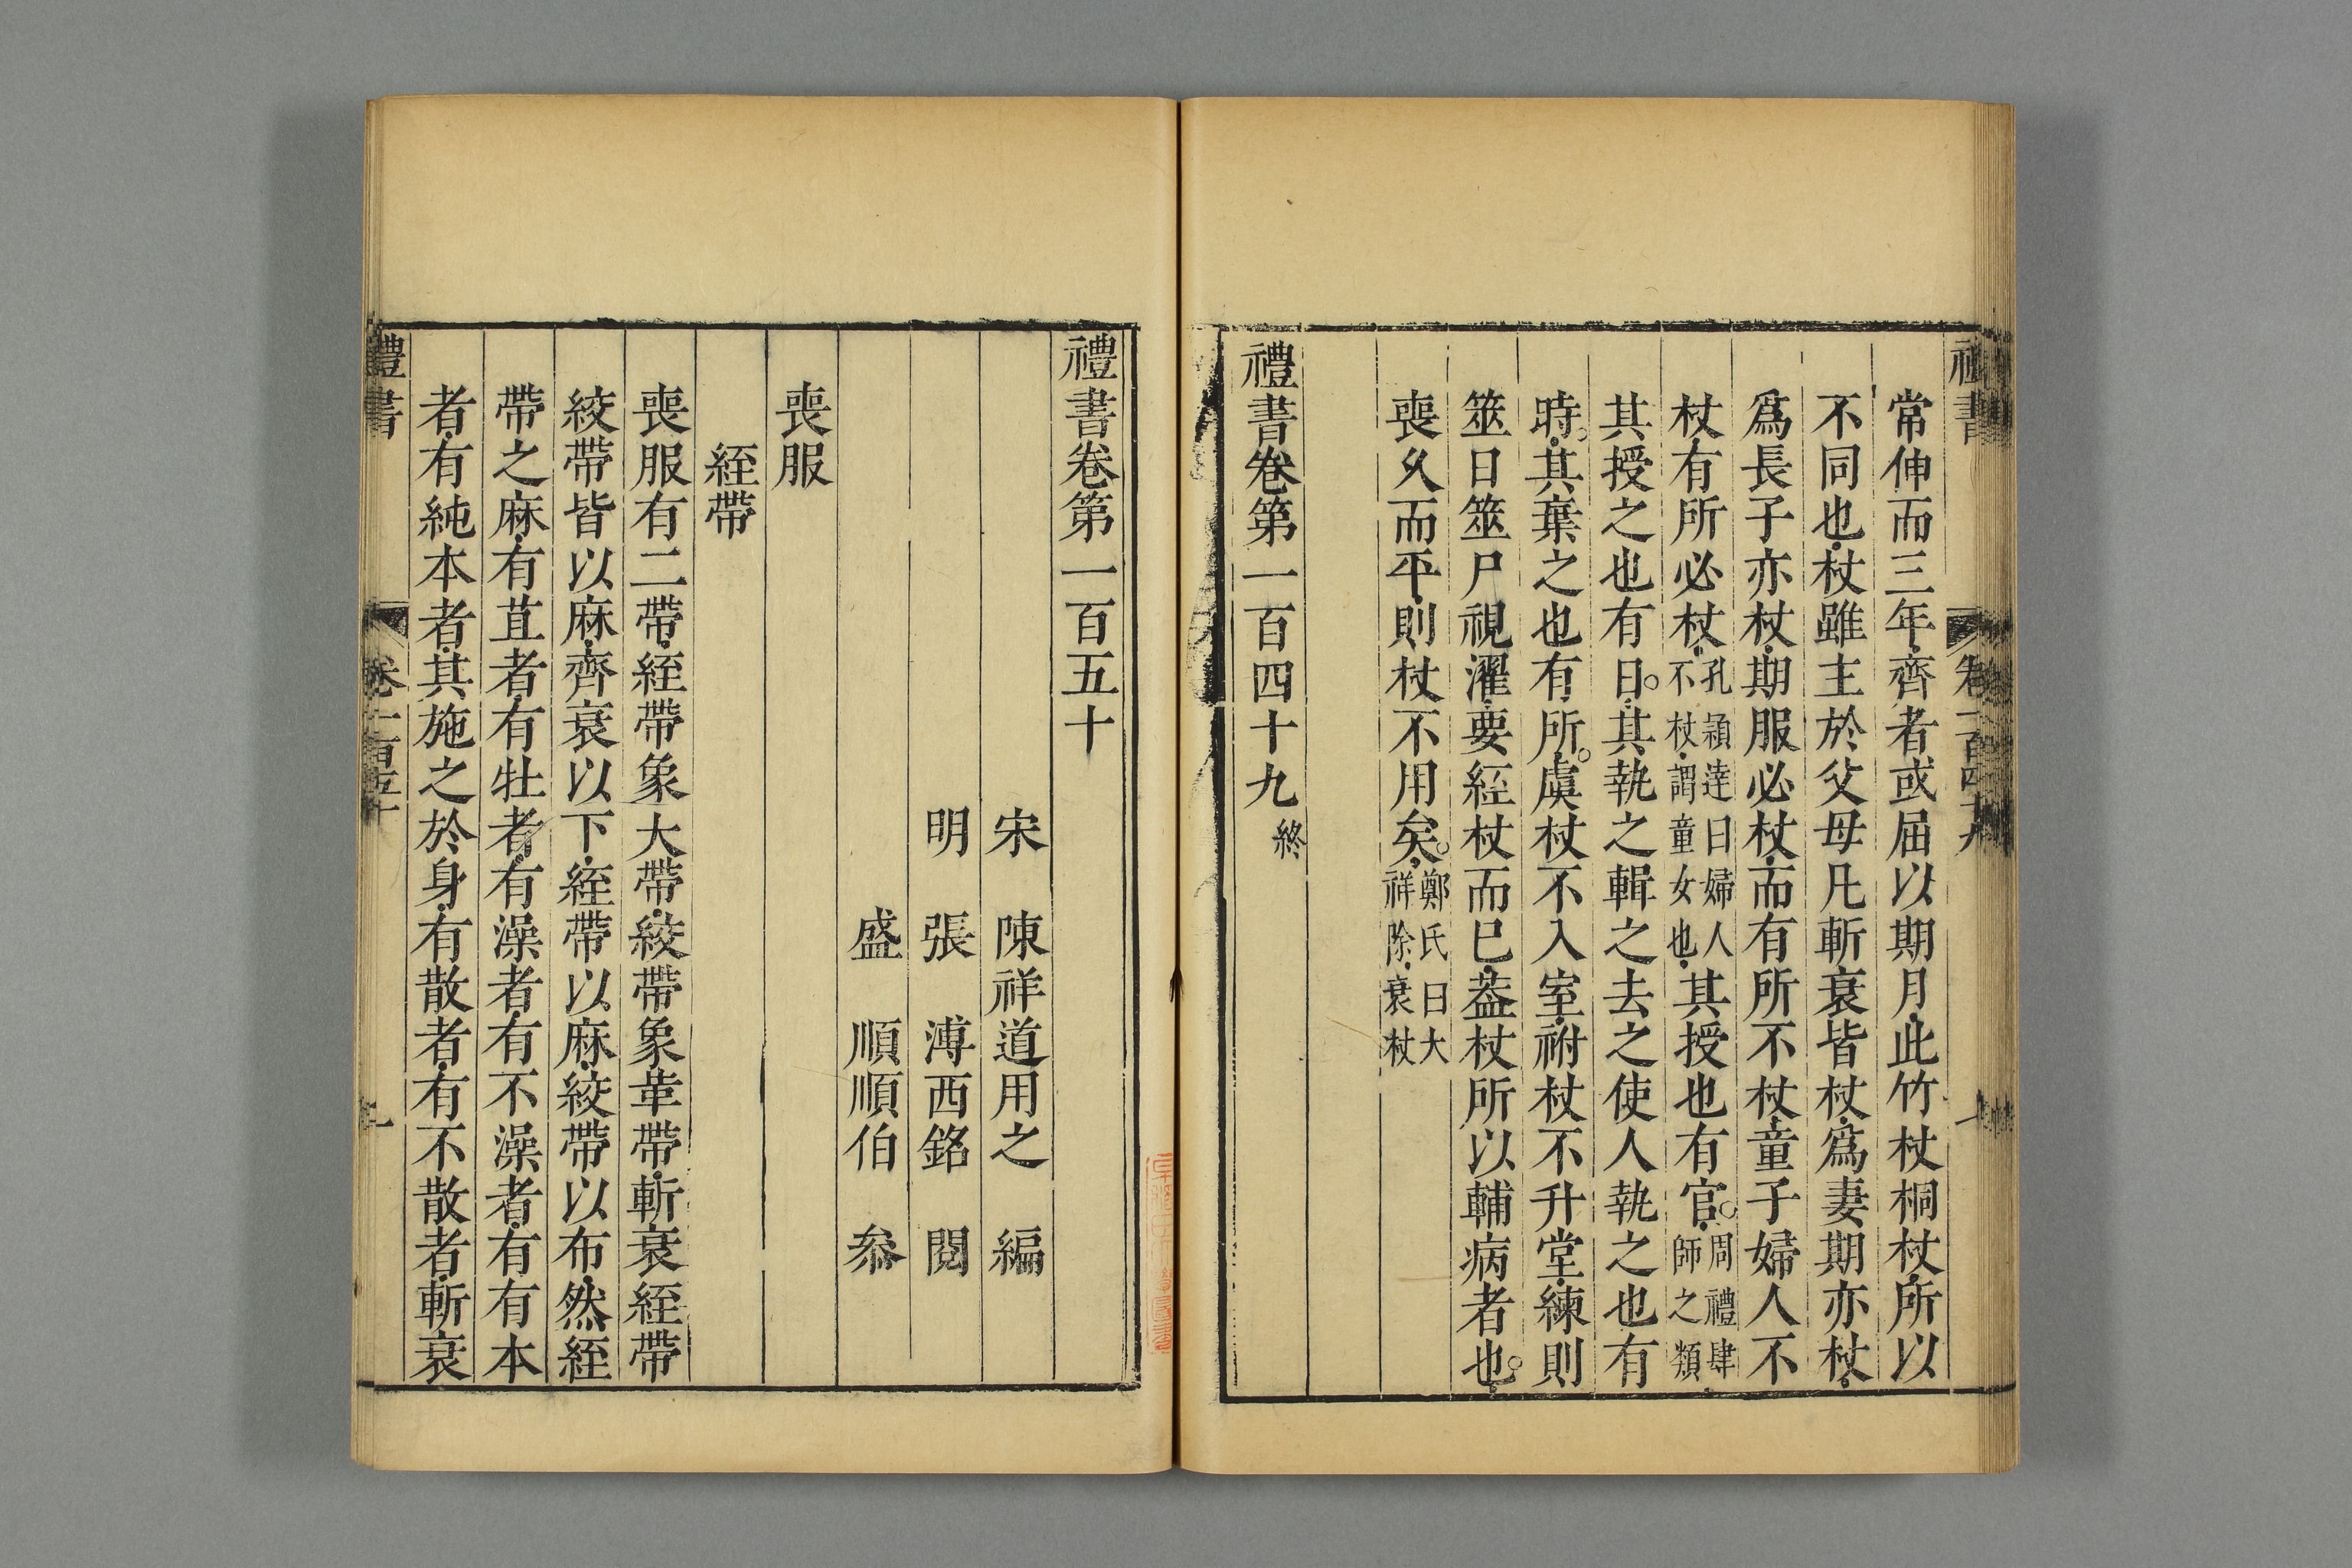 常伸而三年齊者或屈以期月此竹杖桐杖所以
不同也杖雖主於父母凡斬衰皆杖爲妻期亦杖
爲長子亦杖期服必杖而有所不杖童子婦人不
杖有所必杖孔穎達曰婦人不杖謂童女也其授也有官周禮肆師之類
其授之也有日其執之輯之去之使人執之也有
時其棄之也有所虞杖不入室祔杖不升堂練則
筮日筮尸視濯要絰杖而巳葢杖所以輔病者也
喪久而平則杖不用矣鄭氏曰大祥除衰杖
禮書卷第一百四十九終
禮書卷第一百五十
宋 陳祥道用之 編
明 張 溥西銘 閱
盛 順順伯 叅
喪服
絰帶
喪服有二帶絰帶象大帶絞帶象革帶斬衰絰帶
絞帶皆以麻齊衰以下絰帶以麻絞帶以布然絰
帶之麻有苴者有牡者有澡者有不澡者有有本
者有純本者其施之於身有散者有不散者斬衰
禮書 卷一百五十 一